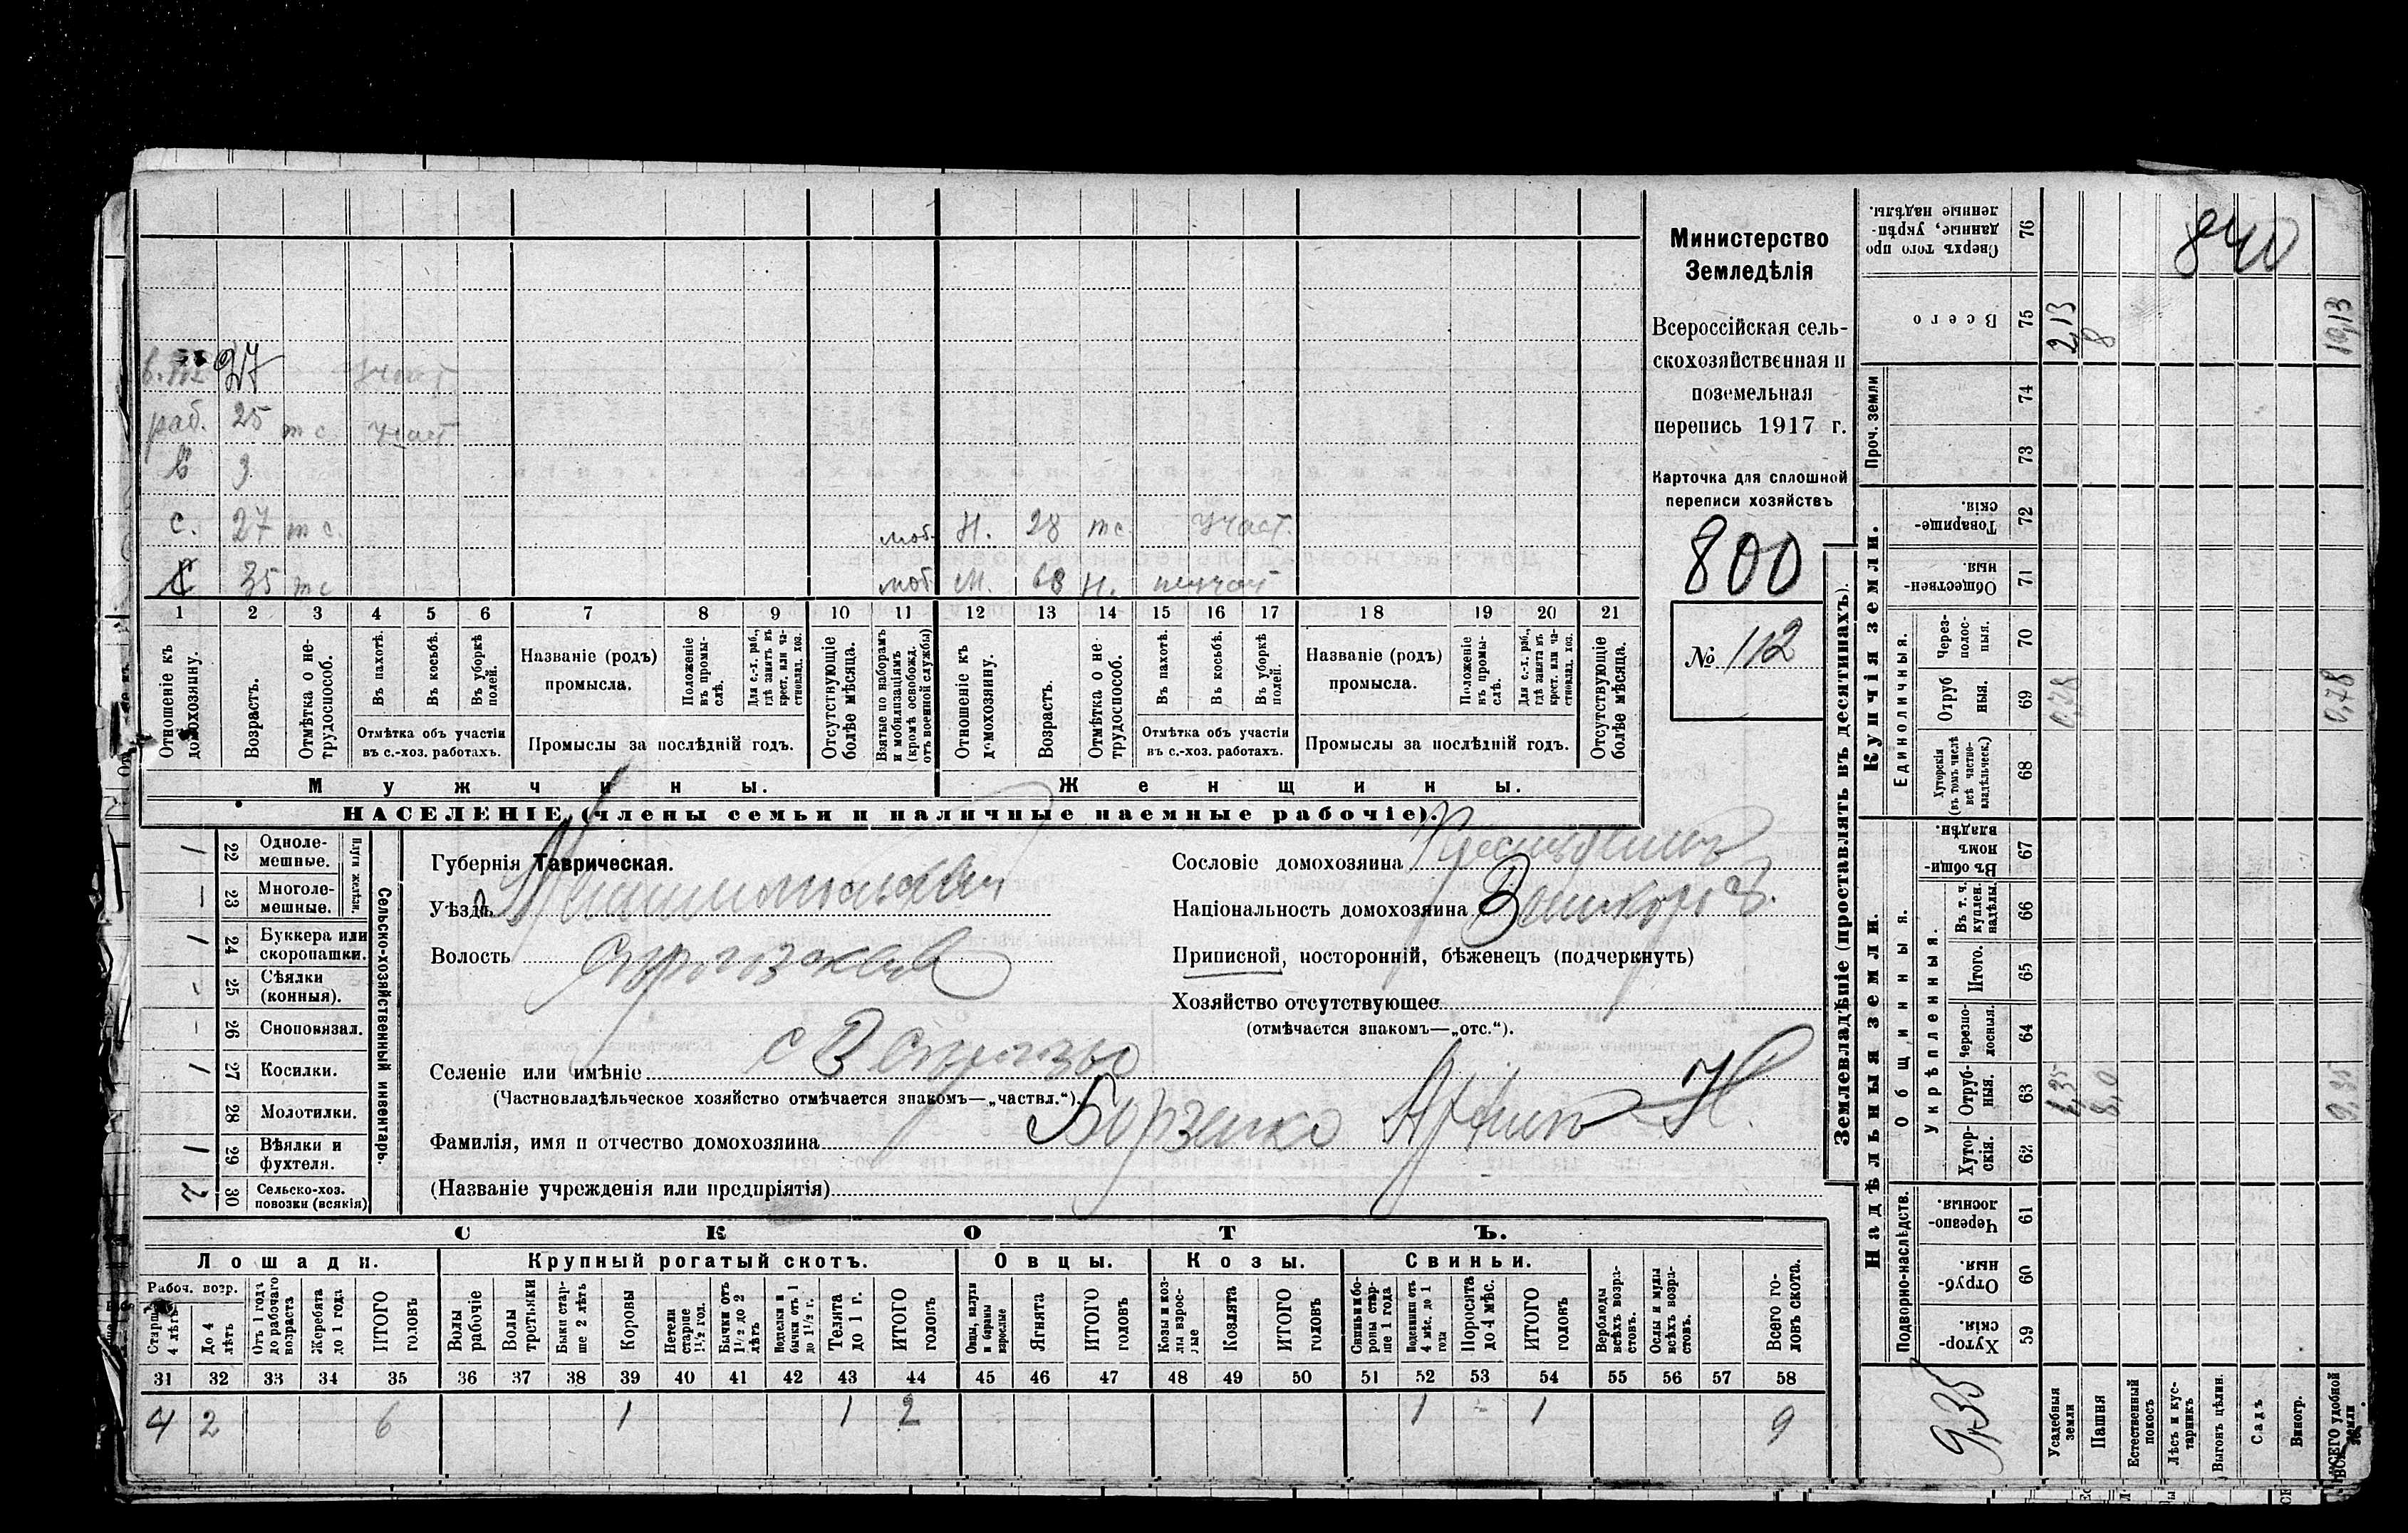 Министерство
Земледѣлія
Всероссійская сель-
скохозяйственная и
поземельная
перепись 1917 г.
Карточка для сплошной
переписи хозяйствъ
800
№ 112
840
27 участ
раб. 25 т с. участ
3
с. 27 т с. моб. Н. 28 тс участ.
С 35 тс моб М. 68 Н. неучаст
1 2 3 4 5 6 7 8 9 10 11 12 13 14 15 16 17 18 19 20 21
Отношеніе къ домохозяину.
Возрастъ.
Отмѣтка о не-трудоспособ.
Въ пахотѣ.
Въ косьбѣ.
Въ уборкѣ полей.
Отмѣтка объ участіи
въ с.-хоз. работахъ.
Названіе (родъ)
промысла.
Положеніе въ промы-слѣ.
Для с.-х. раб., гдѣ занятъ въ крест. или ча-стновлад. хоз.
Промыслы за послѣдній годъ.
Отсутствующіе болѣе мѣсяца.
Взятые по наборамъ и мобилизаціямъ (кромѣ освобожд. отъ военной службы)
Отношеніе къ домохозяину.
Возрастъ.
Отмѣтка о не трудоспособ.
Въ пахотѣ.
Въ косьбѣ.
Въ уборкѣ полей.
Отмѣтка объ участіи
въ с.-хоз. работахъ.
Названіе (родъ)
промысла.
Положеніе въ промы-слѣ.
Для с.-х. раб., гдѣ занятъ въ крест. или ча-стновлад. хоз.
Промыслы за послѣдній годъ.
Отсутствующіе болѣе мѣсяца.
Мужчины. Женщины.
НАСЕЛЕНІЕ (члены семьи и наличные наемные рабочіе).
Сельско-хозяйственный инвентарь.
Плуги желѣзн.
1 22 Одноле-мешные.
— 23 Многоле-мешные.
1 24 Буккера или скоропашки.
- 25 Сѣялки (конныя).
- 26 Сноповязал.
1 27 Косилки.
28 Молотилки.
1 29 Вѣялки и фухтеля.
2 30 Сельско-хоз. повозки (всякія)
Губернія Таврическая.
Уѣздъ
Волость
Селеніе или имѣніе
(Частновладѣльческое хозяйство отмѣчается знакомъ—„частвл.“).
Фамилія, имя и отчество домохозяина Борзенко
(Названіе учрежденія или предпріятія)
Сословіе домохозяина
Національность домохозяина
Приписной, посторонній, бѣженецъ (подчеркнуть)
Хозяйство отсутствующее
(отмѣчается знакомъ—„отс.“).
СКОТЪ.
Лошади. Крупный рогатый скотъ. Овцы. Козы. Свиньи.
Рабоч. возр.
Старше 4 лѣтъ
До 4 лѣтъ
Отъ 1 года до рабочаго возраста
Жеребята до 1 года
ИТОГО головъ
Волы рабочіе
Волы третьяки
Быки стар-ше 2 лѣтъ
Коровы
Нетели старше 1½ год.
Бычки отъ 1½ до 2 лѣтъ
Телята до 1 г.
ИТОГО головъ
Овцы, валухи и бараны взрослые
Ягнята
ИТОГО головъ
Козы и коз-лы взрос-лые
Козлята
ИТОГО головъ
Свиньи и бо-ровы стар-ше 1 года
Подсвинки отъ 4 мѣс. до 1 года
Поросята до 4 мѣс.
ИТОГО головъ
Верблюды всѣхъ возра-стовъ.
Ослы и мулы всѣхъ возра-стовъ.
Всего го-ловъ скота.
31 32 33 34 35 36 37 38 39 40 41 42 43 44 45 46 47 48 49 50 51 52 53 54 55 56 57 58
4 2 6 1 1 2 1 - 1 9
Землевладѣніе (проставлять въ десятинахъ).
Купчія земли.
Надѣльныя земли.
Сверхъ того про данные, укрѣп-ленные надѣлы. 76
Всего 75 2,13 8 10,13
Проч. земли 74
73
Единоличныя.
Товарище-скія. 72
Обществен-ныя 71
Через-полос-ныя. 70
Отруб ныя. 69 0,78 0,78
Хуторскія (въ томъ числѣ всѣ частно-владѣльческ.) 68
Общинныя.
Укрѣпленныя.
Въ общи номъ владѣн. 67
Въ т. ч. куплен. надѣлы. 66
Итого. 65
Черезпо-лосныя. 64
Отруб-ныя. 63 1,35 8,0 9,35
Хутор-скія. 62
Подворно-наслѣдств.
Черезпо-лосныя. 61
Отруб-ныя 60
Хутор-скія. 59
9,35
Усадебныя земли
Пашня
Естественный покосъ
Лѣсъ и кус-тарникъ
Выгонъ цѣлин.
Садъ
Виногр.
ВСЕГО удобной земли